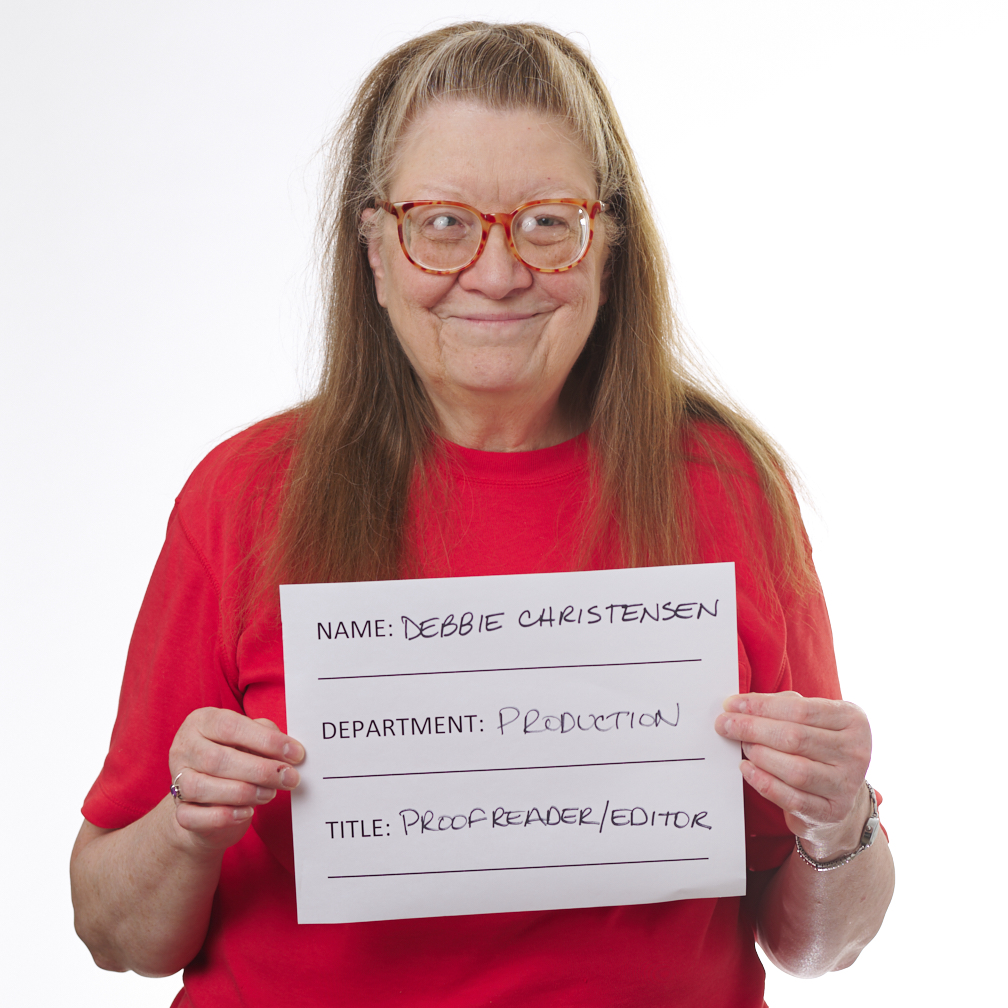 NAME: DEBBIE CHRISTENSEN
DEPARTMENT: PRODUCTION
TITLE: PROOFREADER/EDITOR